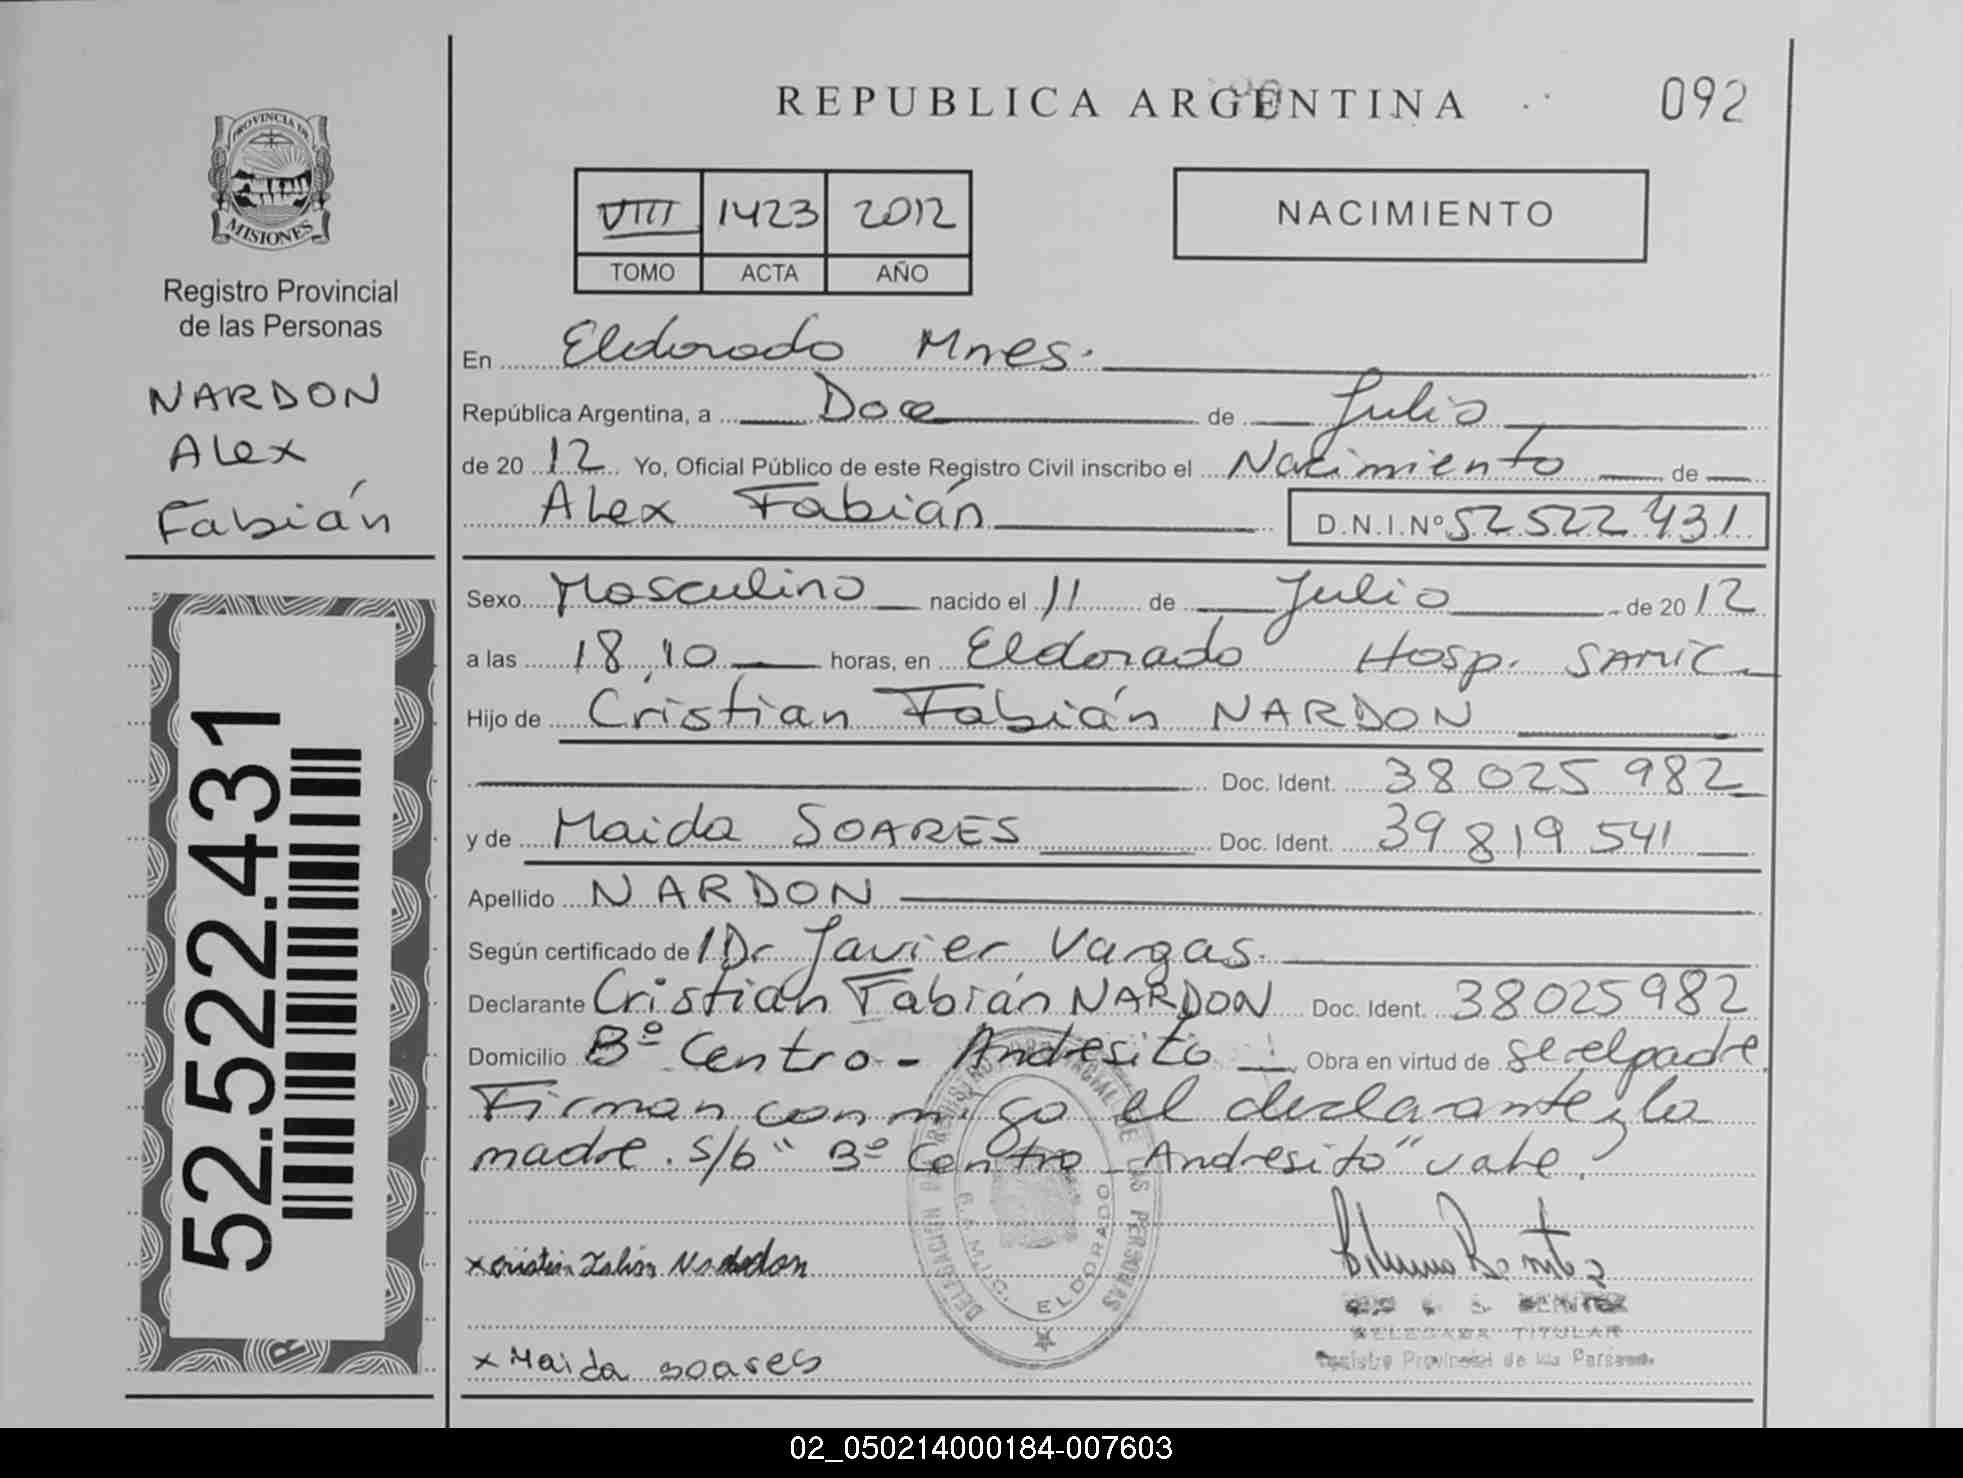 REPUBLICA ARGENTINA
092
PROVINCIA DE
MISIONES
Registro Provincial
de las Personas
NARDON
Alex
Fabián
VIII 1423 2012
TOMO ACTA AÑO
NACIMIENTO
En Eldorado Mnes.
República Argentina, a Doce de Julio
de 20 12 Yo, Oficial Público de este Registro Civil inscribo el Nacimiento de
Alex Fabián D.N.I.Nº 52 522 431
Sexo Masculino nacido el 11 de Julio de 20 12
a las 18,10 horas, en Eldorado Hosp. SAMIC
Hijo de Cristian Fabián NARDON
Doc. Ident. 38 025 982
y de Maida SOARES Doc. Ident. 39 819 541
Apellido NARDON
Según certificado de Dr Javier Vargas.
Declarante Cristian Fabián NARDON Doc. Ident. 38025982
Domicilio Bº Centro - Andresito Obra en virtud de ser el padre
Firman conmigo el declarante y la
madre. S/b "Bº Centro - Andresito" vale.
x Cristian Fabian Nardon
x Maida soares
DELEGACION DEL REGISTRO PROVINCIAL DE LAS PERSONAS
ELDORADO
BENITEZ
DELEGADA TITULAR
Registro Provincial de las Personas
52.522.431
02_050214000184-007603